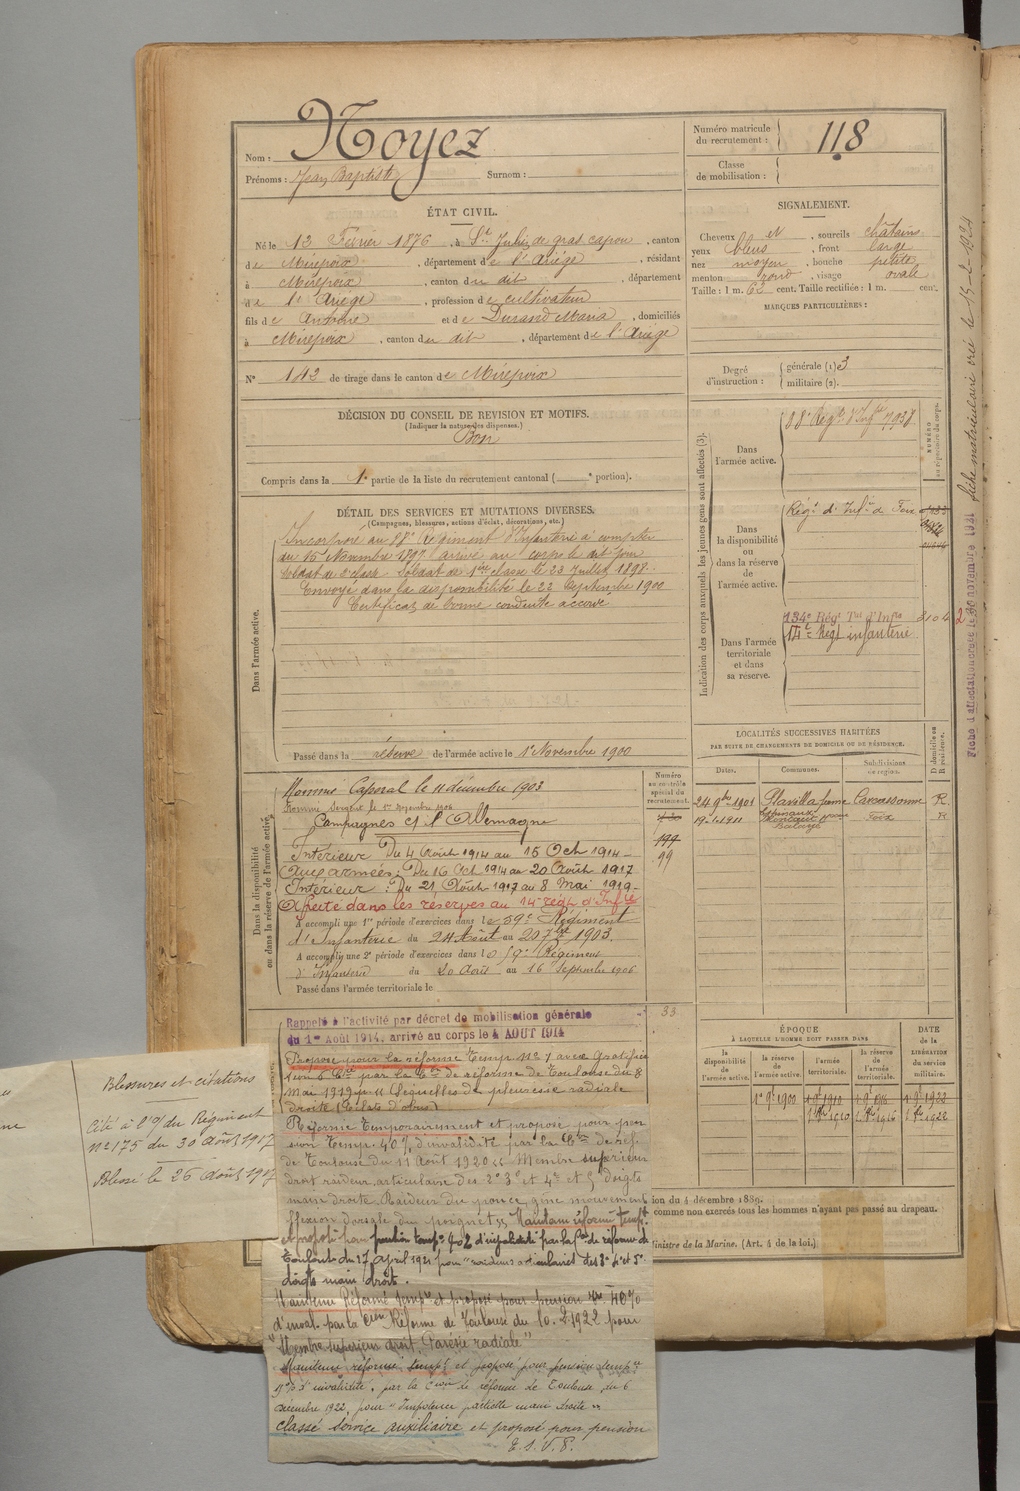 Nom : Noyez
Prénoms : Jean Baptiste Surnom :
Numéro matricule du recrutement : 118
Classe de mobilisation :
ÉTAT CIVIL.
Né le 13 Février 1876, à St Julien de gras capou, canton
de Mirepoix, département de l'Ariège, résidant
à Mirepoix, canton du dit, département
de l'Ariège, profession de cultivateur
fils de Antoine et de Durand Maria, domiciliés
à Mirepoix, canton du dit, département de l'Ariège
N° 142 de tirage dans le canton de Mirepoix
SIGNALEMENT.
Cheveux et sourcils châtains
yeux bleus, front large
nez moyen, bouche petite
menton rond, visage ovale
Taille : 1 m. 62 cent. Taille rectifiée : 1 m. cent.
MARQUES PARTICULIÈRES :
Degré d'instruction : générale (1) 3
militaire (2).
DÉCISION DU CONSEIL DE REVISION ET MOTIFS.
(Indiquer la nature des dispenses.)
Bon
Compris dans la 1e partie de la liste du recrutement cantonal ( e portion).
DÉTAIL DES SERVICES ET MUTATIONS DIVERSES.
(Campagnes, blessures, actions d'éclat, décorations, etc.)
Dans l'armée active.
Incorporé au 88e Régiment d'Infanterie à compter
du 15 Novembre 1897 arrivé au corps le dit jour
Soldat de 2e classe Soldat de 1ère classe le 23 Juillet 1898
Envoyé dans la disponibilité le 22 Septembre 1900
Certificat de bonne conduite accordé
Passé dans la réserve de l'armée active le 1er Novembre 1900
Indication des corps auxquels les jeunes gens sont affectés (3).
NUMÉRO au répertoire du corps.
Dans l'armée active.
88e Régt d'Inftie 7938
Dans la disponibilité ou dans la réserve de l'armée active.
Régt d'Infie de Foix
Dans l'armée territoriale et dans sa réserve.
134e Régt Tal d'Infie 3104
14e Régt infanterie
fiche matriculaire créé le 15-2-1924
Fiche d'affectation créée le 30 novembre 1931
LOCALITÉS SUCCESSIVES HABITÉES
PAR SUITE DE CHANGEMENTS DE DOMICILE OU DE RÉSIDENCE.
Dates. Communes. Subdivisions de région. D domicile ou R résidence.
24 9bre 1901 Plavilla Carcassonne R
19-1-1911 Foix R
Dans la disponibilité ou dans la réserve de l'armée active.
Numéro au contrôle spécial du recrutement.
199
99
Nommé Caporal le 11 décembre 1903
Nommé Sergent le 1er 1906
Campagnes c/ l'Allemagne
Intérieur Du 4 Août 1914 au 15 Oct 1914
Aux armées : Du 16 Oct 1914 au 20 Août 1917
Intérieur : Du 21 Août 1917 au 8 Mai 1919
Affecté dans les réserves au 14e régt d'Infie
A accompli une 1re période d'exercices dans le 59e Régiment
d'Infanterie du 24 Août au 20 7bre 1903.
A accompli une 2e période d'exercices dans le 59e Régiment
d'Infanterie du 20 Août au 16 Septembre 1906
Passé dans l'armée territoriale le
33
ÉPOQUE
À LAQUELLE L'HOMME DOIT PASSER DANS
la disponibilité de l'armée active. la réserve de l'armée active. l'armée territoriale. la réserve de l'armée territoriale.
DATE de la LIBÉRATION du service militaire.
1er 9bre 1900 1er 9bre 1910 1er 9bre 1916 1er 9bre 1922
Rappelé à l'activité par décret de mobilisation générale
du 1er Août 1914, arrivé au corps le 4 AOUT 1914
Proposé pour la réforme Temp. n° 1 avec gratification
par la Con de réforme de Toulouse du 8
Mai 1919 pr "Séquelles de pleurésie radiale
droite (éclats d'obus)
Réformé Temporairement et proposé pour pen
sion Temp. 40% d'invalidité par la Con de réfe
de Toulouse du 11 Août 1920 "Membre supérieur
droit raideur articulaire des 2e 3e et 4e et 5e doigts
main droite. Raideur du pouce, gêne mouvement
flexion dorsale du poignet". Maintenu réformé tempt
et proposé pour pension tempre 40% d'invalidité par la Con de réforme de
Toulouse du 17 avril 1921 pour "raideurs articulaires des 3e 4e et 5e
doigts main droite.
Maintenu Réformé tempre et proposé pour pension tre 40%
d'inval. par la Con Réforme de Toulouse du 10.2.1922 pour
"Membre supérieur droit. Parésie radiale"
Maintenu réformé tempt et proposé pour pension tempre
d'invalidité, par la Con de réforme de Toulouse du 6
décembre 1922, pour "Impotence partielle main droite"
classé service auxiliaire et proposé pour pension
Blessures et citations
Cité à l'O/ du Régiment
n° 175 du 30 Août 1917
Blessé le 26 Août 1917
ion du 4 décembre 1889.
comme non exercés tous les hommes n'ayant pas passé au drapeau.
Ministre de la Marine. (Art. 4 de la loi.)